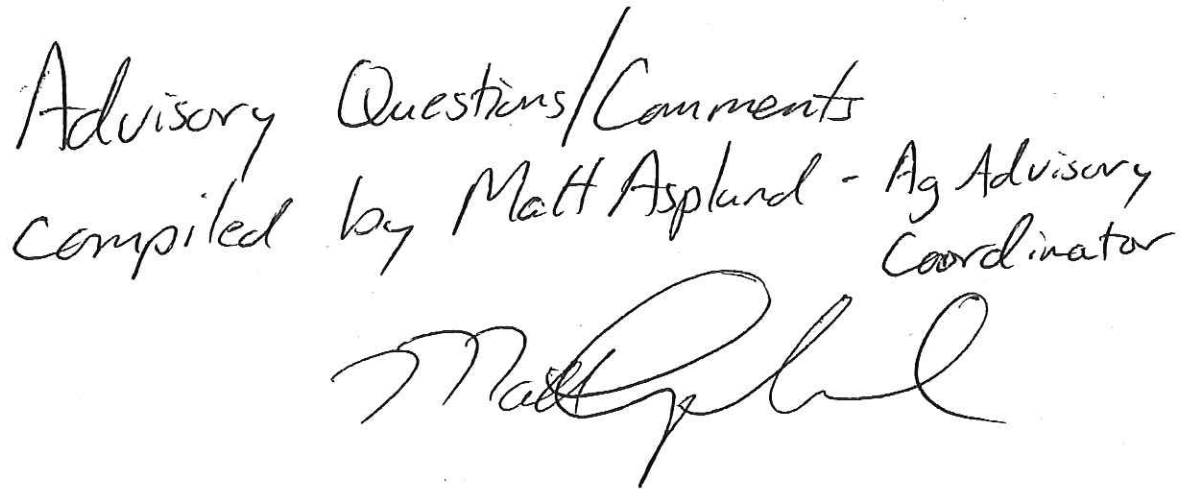 Advisory Questions/Comments
compiled by Matt Asplund - Ag Advisory
Coordinator
Matt Asplund